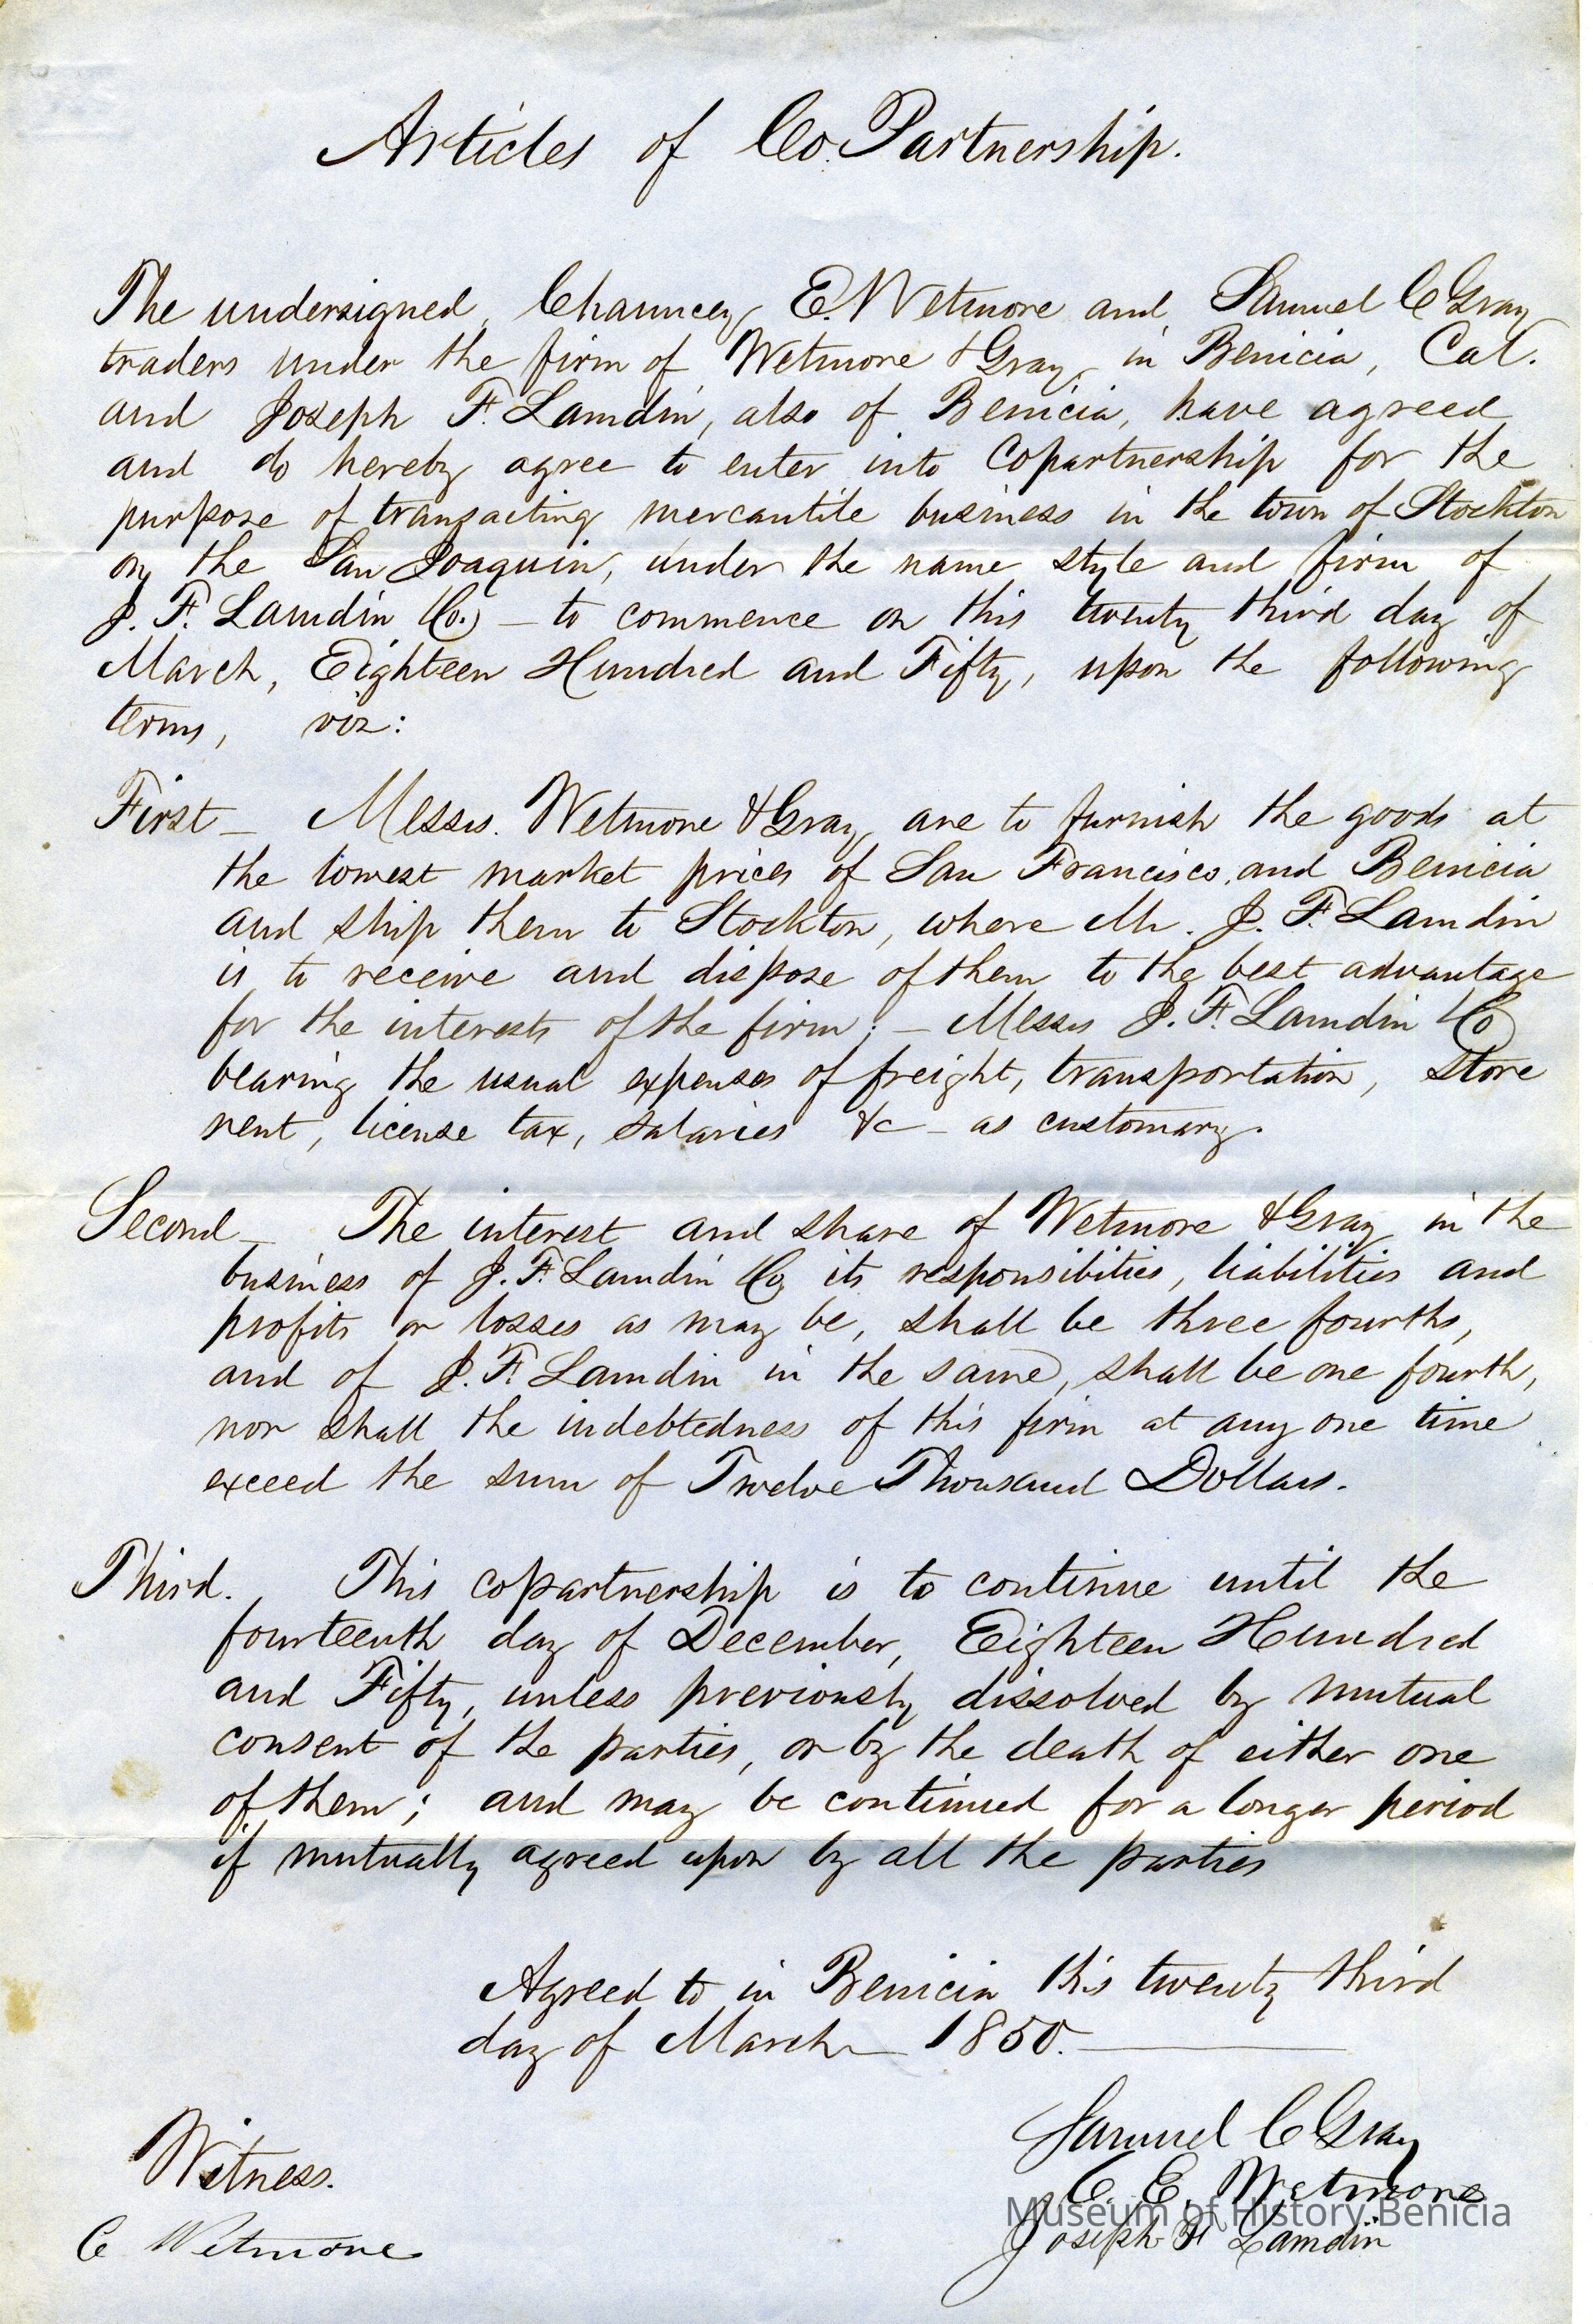 Articles of Co. Partnership.
The undersigned, Chauncey E. Wetmore and Samuel C Gray
traders under the firm of Wetmore & Gray in Benicia, Cal.
and Joseph F. Lamdin, also of Benicia, have agreed
and do hereby agree to enter into Copartnership for the
purpose of transacting mercantile business in the town of Stockton
on the San Joaquin, under the name style and firm of
J. F. Lamdin & Co. – to commence on this twenty third day of
March, Eighteen Hundred and Fifty, upon the following
terms, viz:
First – Messrs. Wetmore & Gray are to furnish the goods at
the lowest market prices of San Francisco, and Benicia
and ship them to Stockton, where Mr. J. F. Lamdin
is to receive and dispose of them to the best advantage
for the interests of the firm; – Messrs J. F. Lamdin & Co
bearing the usual expenses of freight, transportation, store
rent, license tax, salaries &c – as customary.
Second – The interest and share of Wetmore & Gray in the
business of J. F. Lamdin & Co, its responsibilities, liabilities and
profits or losses as may be, shall be three fourths,
and of J. F. Lamdin in the same, shall be one fourth,
nor shall the indebtedness of this firm at any one time
exceed the sum of Twelve Thousand Dollars.
Third. This copartnership is to continue until the
fourteenth day of December, Eighteen Hundred
and Fifty, unless previously dissolved by mutual
consent of the parties, or by the death of either one
of them; and may be continued for a longer period
if mutually agreed upon by all the parties
Agreed to in Benicia this twenty third
day of March 1850.
Samuel C Gray
Witness.
C. E. Wetmore
Museum of History Benicia
Joseph F Lamdin
C Wetmore